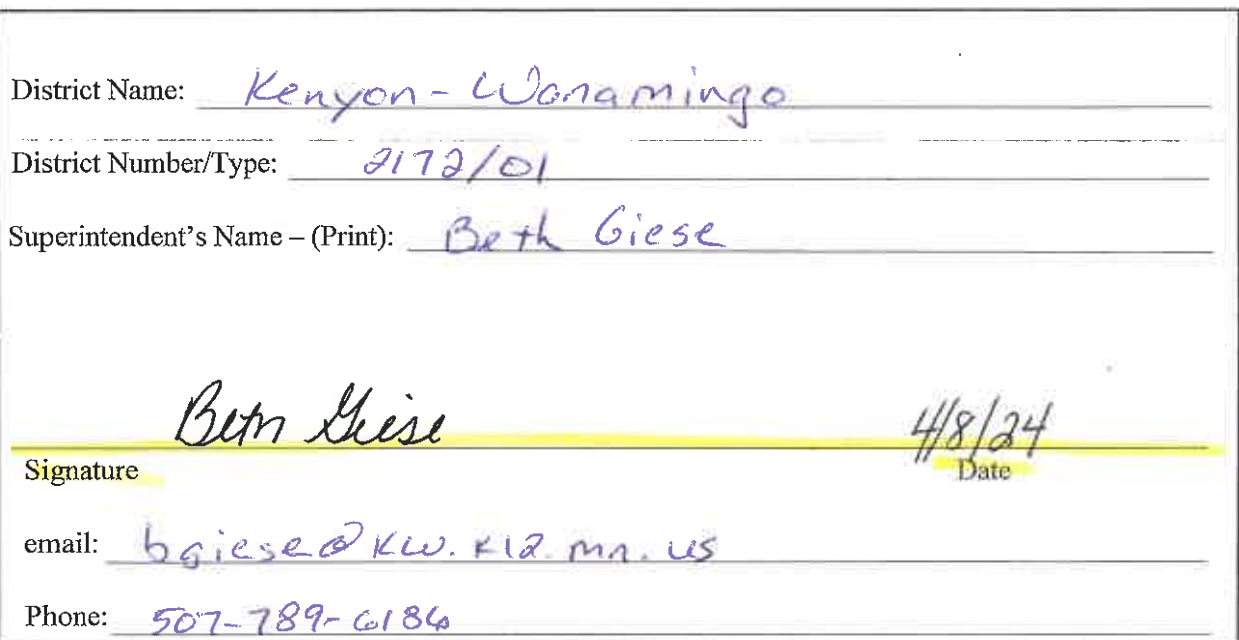 District Name: Kenyon - Wanamingo
District Number/Type: 2172/01
Superintendent's Name – (Print): Beth Giese
Beth Giese 4/8/24
Signature Date
email: bgiese@kw.k12.mn.us
Phone: 507-789-6186